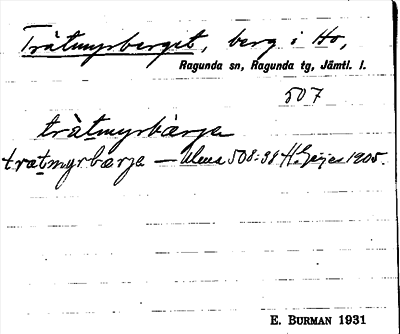 Tråtmyrberget, berg i Ho,
Ragunda sn, Ragunda tg, Jämtl. l.
507
tràtmyrbærje
tratmyrbærje — Ulma 508:38 H. Geijer 1905.
E. BURMAN 1931